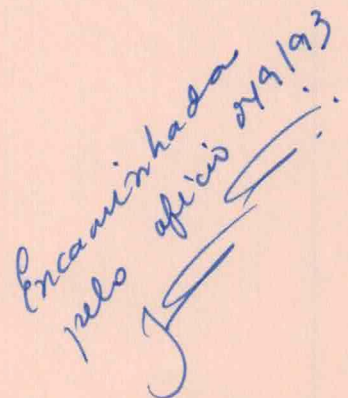 Encaminhada
pelo ofício 049/93